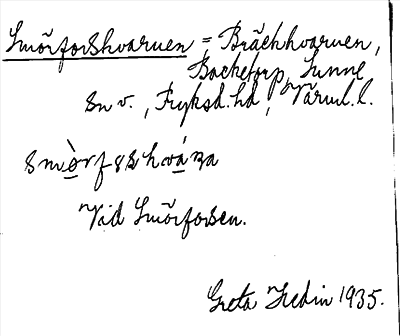 Smörforskvarnen = Bräckkvarnen,
Backetorp, Sunne
sn v., Fryksd. hd, Värml. l.
smörfskvána
Vid Smörforsen.
Greta Hedin 1935.